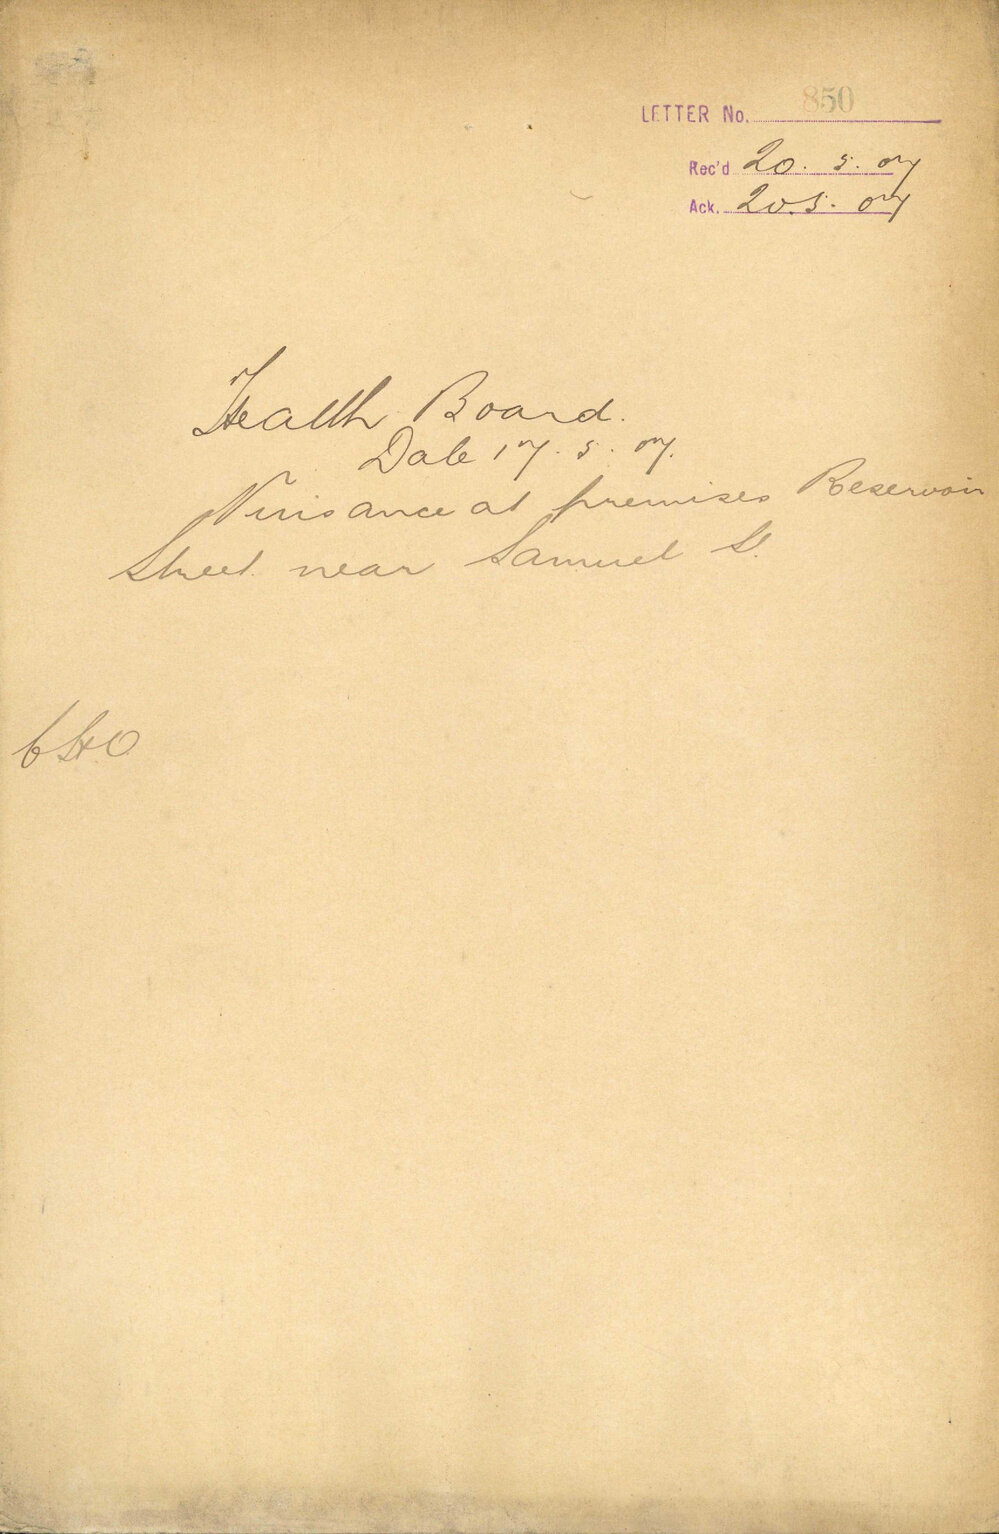 LETTER No. 850
Rec'd 20. 5. 07
Ack. 20.5. 07
Health Board.
Date 17. 5. 07.
Nuisance at premises Reservoir
Street near Samuel St.
CHO